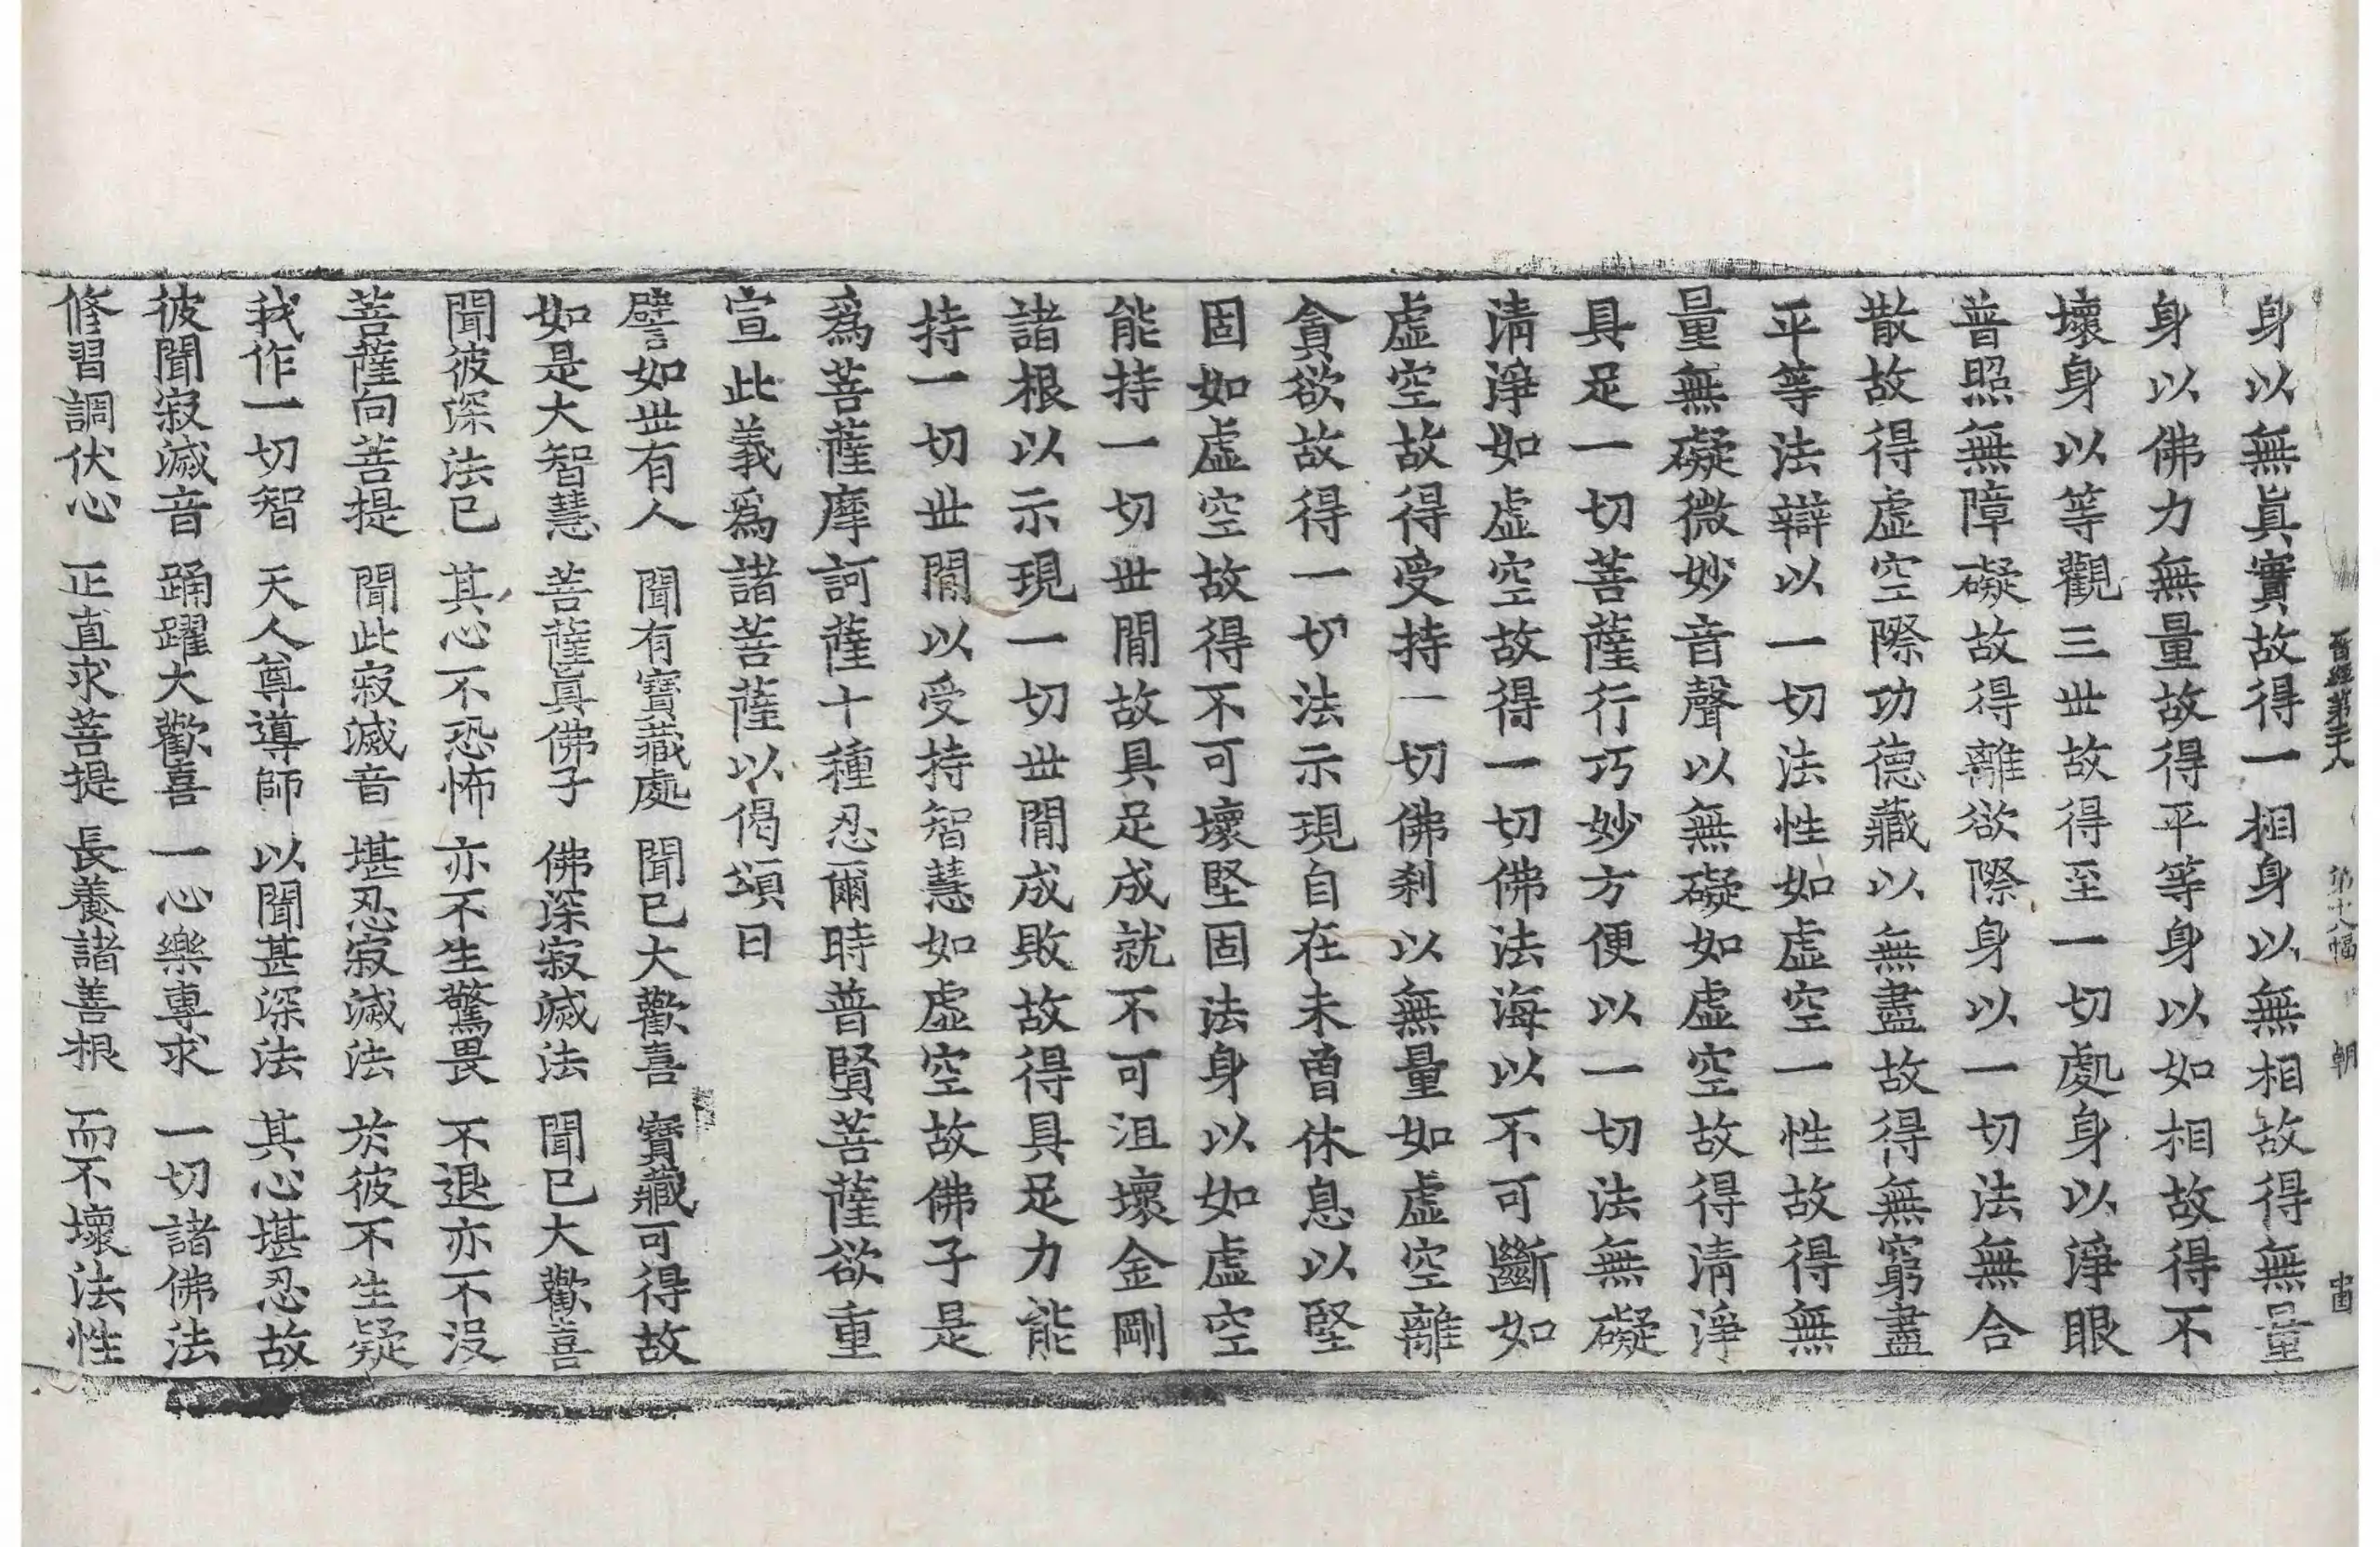 晉經第二十八　第十八幅　朝
身以無眞實故得一相身以無相故得無量
身以佛力無量故得平等身以如相故得不
壞身以等觀三丗故得至一切處身以淨眼
普照無障礙故得離欲際身以一切法無合
散故得虛空際功德藏以無盡故得無窮盡
平等法辯以一切法性如虛空一性故得無
量無礙微妙音聲以無礙如虛空故得淸淨
具足一切菩薩行巧妙方便以一切法無礙
淸淨如虛空故得一切佛法海以不可斷如
虛空故得受持一切佛刹以無量如虛空離
貪欲故得一切法示現自在未曾休息以堅
固如虛空故得不可壞堅固法身以如虛空
能持一切丗閒故具足成就不可沮壞金剛
諸根以示現一切丗閒成敗故得具足力能
持一切丗閒以受持智慧如虛空故佛子是
爲菩薩摩訶薩十種忍爾時普賢菩薩欲重
宣此義爲諸菩薩以偈頌曰
譬如丗有人　聞有寶藏處　聞已大歡喜　寶藏可得故
如是大智慧　菩薩眞佛子　佛深寂滅法　聞已大歡喜
聞彼深法已　其心不恐怖　亦不生驚畏　不退亦不没
菩薩向菩提　聞此寂滅音　堪忍寂滅法　於彼不生疑
我作一切智　天人尊導師　以聞甚深法　其心堪忍故
彼聞寂滅音　踊躍大歡喜　一心樂專求　一切諸佛法
修習調伏心　正直求菩提　長養諸善根　而不壞法性